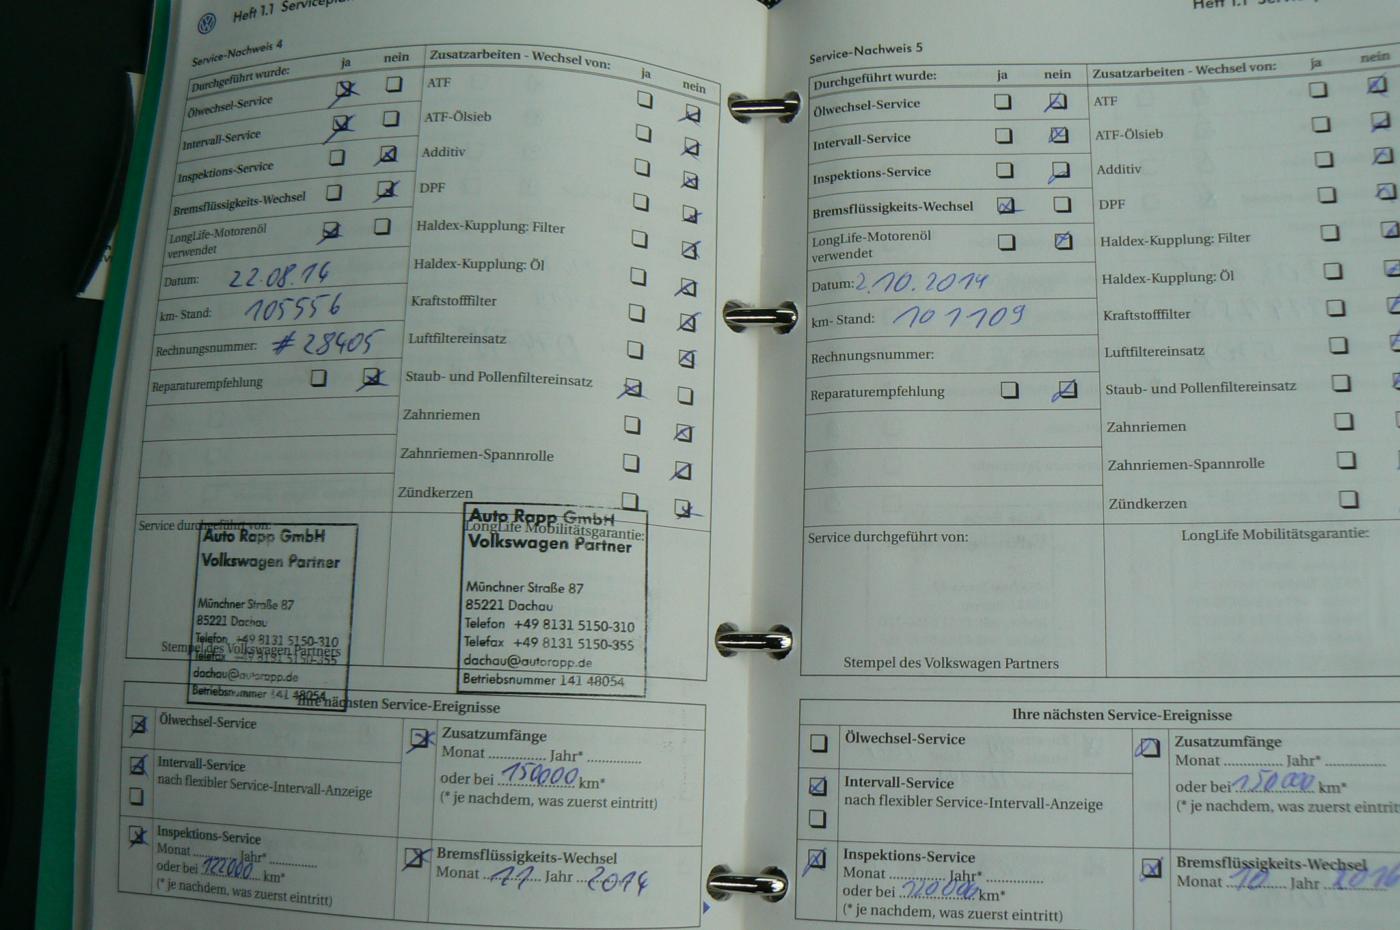 Heft 1.1
Service-Nachweis 4
Durchgeführt wurde: ja nein
Ölwechsel-Service
Intervall-Service
Inspektions-Service
Bremsflüssigkeits-Wechsel
LongLife-Motorenöl
verwendet
Datum: 22.08.14
km- Stand: 105556
Rechnungsnummer: #28405
Reparaturempfehlung
Zusatzarbeiten - Wechsel von: ja nein
ATF
ATF-Ölsieb
Additiv
DPF
Haldex-Kupplung: Filter
Haldex-Kupplung: Öl
Kraftstofffilter
Luftfiltereinsatz
Staub- und Pollenfiltereinsatz
Zahnriemen
Zahnriemen-Spannrolle
Zündkerzen
Service durchgeführt von:
Auto Rapp GmbH
Volkswagen Partner
Münchner Straße 87
85221 Dachau
Telefon +49 8131 5150-310
Telefax +49 8131 5150-355
dachau@autorapp.de
Betriebsnummer 141 48054
Stempel des Volkswagen Partners
LongLife Mobilitätsgarantie:
Auto Rapp GmbH
Volkswagen Partner
Münchner Straße 87
85221 Dachau
Telefon +49 8131 5150-310
Telefax +49 8131 5150-355
dachau@autorapp.de
Betriebsnummer 141 48054
Ihre nächsten Service-Ereignisse
Ölwechsel-Service
Intervall-Service
nach flexibler Service-Intervall-Anzeige
Inspektions-Service
Monat ............ Jahr* ............
oder bei 122000 km*
(* je nachdem, was zuerst eintritt)
Zusatzumfänge
Monat ............ Jahr* ............
oder bei 150000 km*
(* je nachdem, was zuerst eintritt)
Bremsflüssigkeits-Wechsel
Monat 11 Jahr 2014
Heft 1.1
Service-Nachweis 5
Durchgeführt wurde: ja nein
Ölwechsel-Service
Intervall-Service
Inspektions-Service
Bremsflüssigkeits-Wechsel
LongLife-Motorenöl
verwendet
Datum: 2.10.2014
km- Stand: 107109
Rechnungsnummer:
Reparaturempfehlung
Zusatzarbeiten - Wechsel von: ja nein
ATF
ATF-Ölsieb
Additiv
DPF
Haldex-Kupplung: Filter
Haldex-Kupplung: Öl
Kraftstofffilter
Luftfiltereinsatz
Staub- und Pollenfiltereinsatz
Zahnriemen
Zahnriemen-Spannrolle
Zündkerzen
Service durchgeführt von:
Stempel des Volkswagen Partners
LongLife Mobilitätsgarantie:
Ihre nächsten Service-Ereignisse
Ölwechsel-Service
Intervall-Service
nach flexibler Service-Intervall-Anzeige
Inspektions-Service
Monat ............ Jahr* ............
oder bei 120000 km*
(* je nachdem, was zuerst eintritt)
Zusatzumfänge
Monat ............ Jahr* ............
oder bei 150000 km*
(* je nachdem, was zuerst eintritt
Bremsflüssigkeits-Wechsel
Monat 10 Jahr 2016